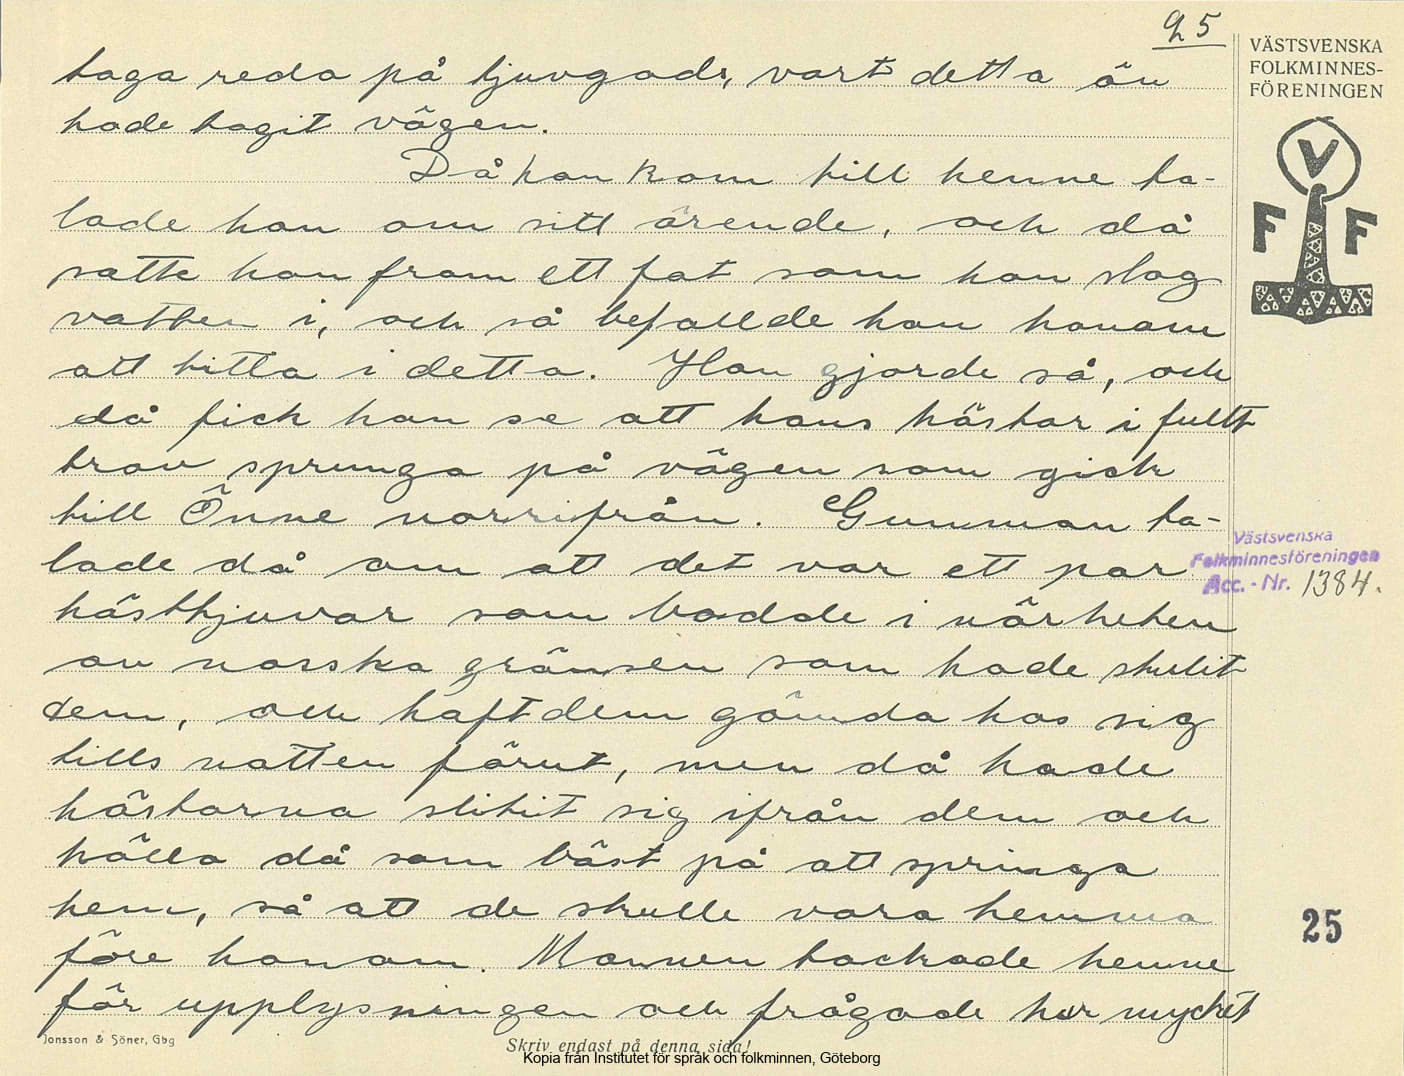 25
VÄSTSVENSKA
FOLKMINNES-
FÖRENINGEN
V
F F
taga reda på tjuvgods, vart detta än
hade tagit vägen.
Då han kom till henne ta-
lade han om sitt ärende, och då
satte hon fram ett fat som hon slog
vatten i, och så befallde hon honom
att titta i detta. Han gjorde så, och
då fick han se att hans hästar i fullt
trav sprunga på vägen som gick
till Önne norrifrån. Gumman ta-
lade då om att det var ett par
hästtjuvar som bodde i närheten
av norska gränsen som hade stulit
dem, och haft dem gömda hos sig
tills natten förut, men då hade
hästarna slitit sig ifrån dem och
hölla då som bäst på att springa
hem, så att de skulle vara hemma
före honom. Mannen tackade henne
för upplysningen och frågade hur mycket
Västsvenska
Folkminnesföreningen
Acc. - Nr. 1384.
25
Jonsson & Söner, Gbg
Skriv endast på denna sida!
Kopia från Institutet för språk och folkminnen, Göteborg